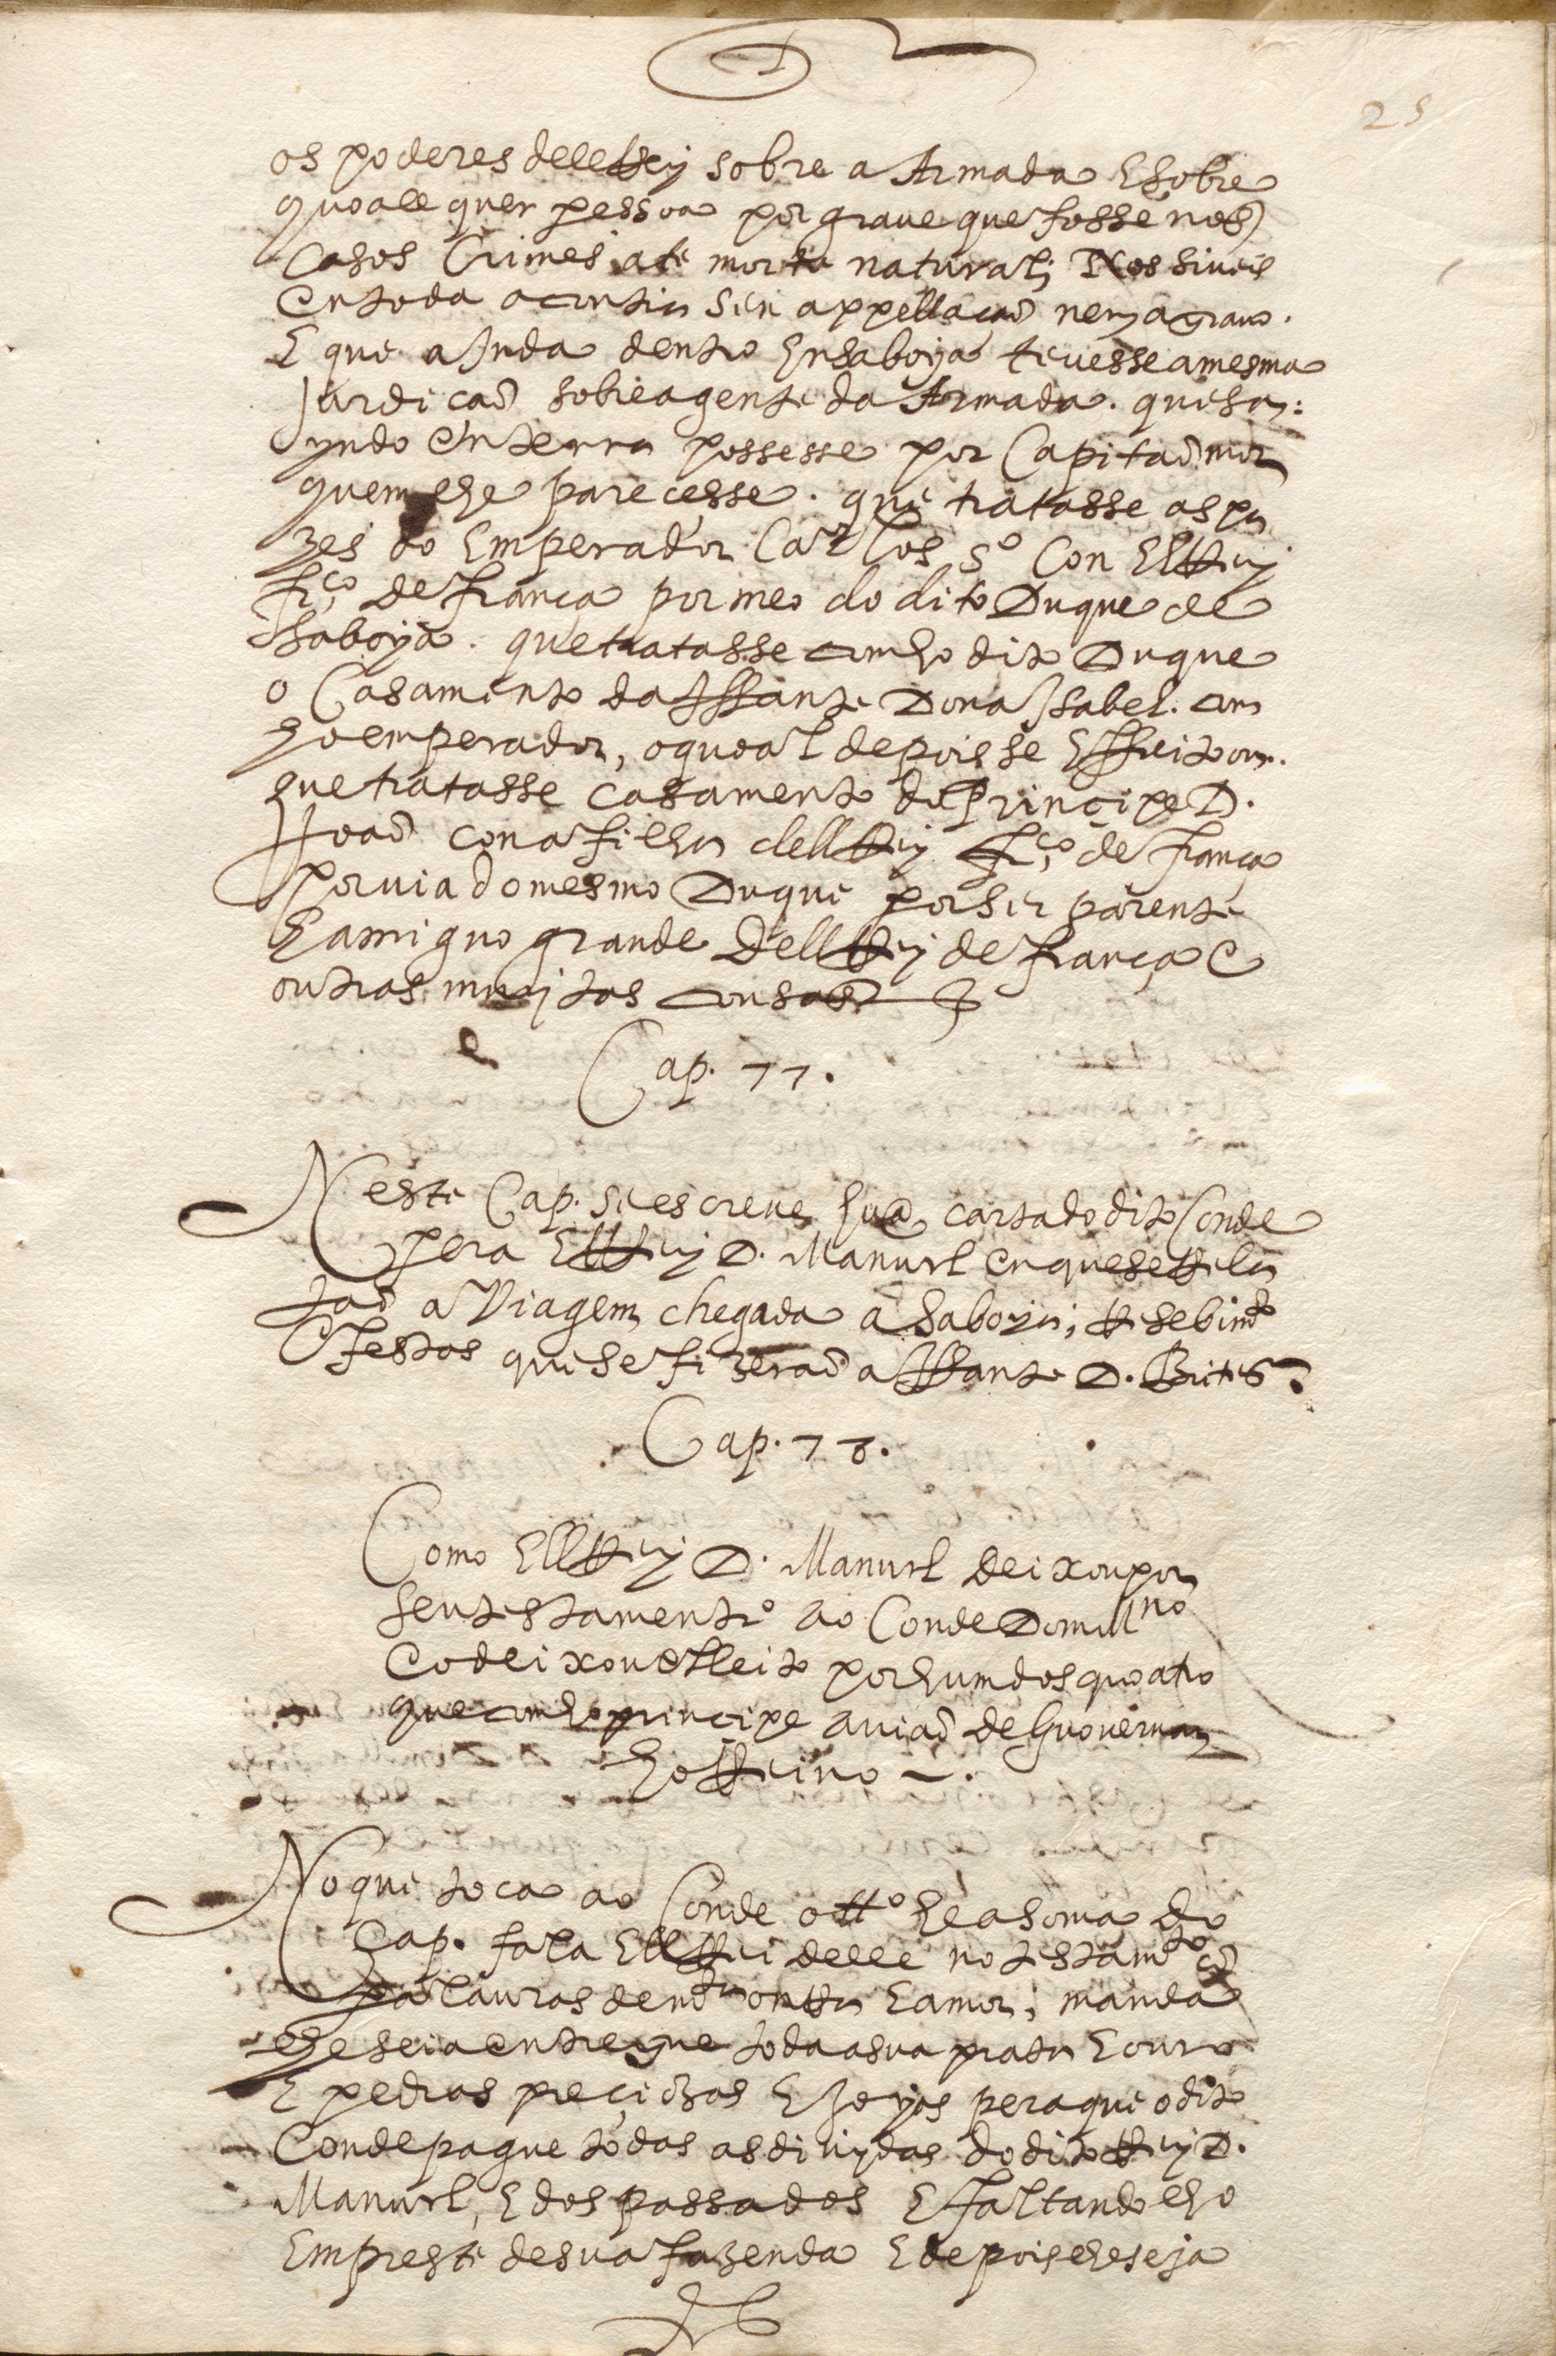 25
os poderes delRey sobre a Armada E sobre
quoall quer pessoa por graue que fosse nos
Casos Crimes ate morte natural; Nos siueis
en toda acontia sen appellacaõ nem agrauo.
E que ainda dentro En saboya teuesse amesma
Jurdicaõ sobre agente da Armada. que say:
yndo En terra possesse por Capitaõ mor
quem lhe parecesse. que tratasse as pa
zes do Emperador Carlos 5º Con ElRey
frco de frança por meo do dito Duque de
Saboya. que tratasse com ho dito Duque
o Casamento da Iffante Dona Isabel. com
ho emperador, o quoal depois se Effeitou.
que tratasse casamento do principe D.
Joaõ con a filha dellRey frco de frança
por uia do mesmo Duque por ser parente
E amiguo grande DellRey de frança E
outras muytas cousas
Cap. 77.
Neste Cap. se escreue hũa carta do dito Conde
pera EllRey D. Manuel En que se Rela
taõ a Viagem, chegada a Saboya; Resebimto
E festas que se fizeraõ a Iffante D. Brites.
Cap. 78.
Como EllRey D. Manuel deixou por
seu testamentrº ao Conde Dom Mno
E o deixou Elleito por hum dos quoatro
que com ho principe auiaõ de Guouernar
ho Reino.
No que toca ao Conde he a soma do
Cap. fala EllRei delle no testamto cõ
palauras de mta onRa E amor; manda
lhe seia entregue toda a sua prata E ouro
E pedras preçiozas E Joyas pera que o dito
Conde pague todas as diuydas do dito Rey D.
Manuel, E dos passados E faltando lho
Empreste de sua fazenda E depois lhe seja